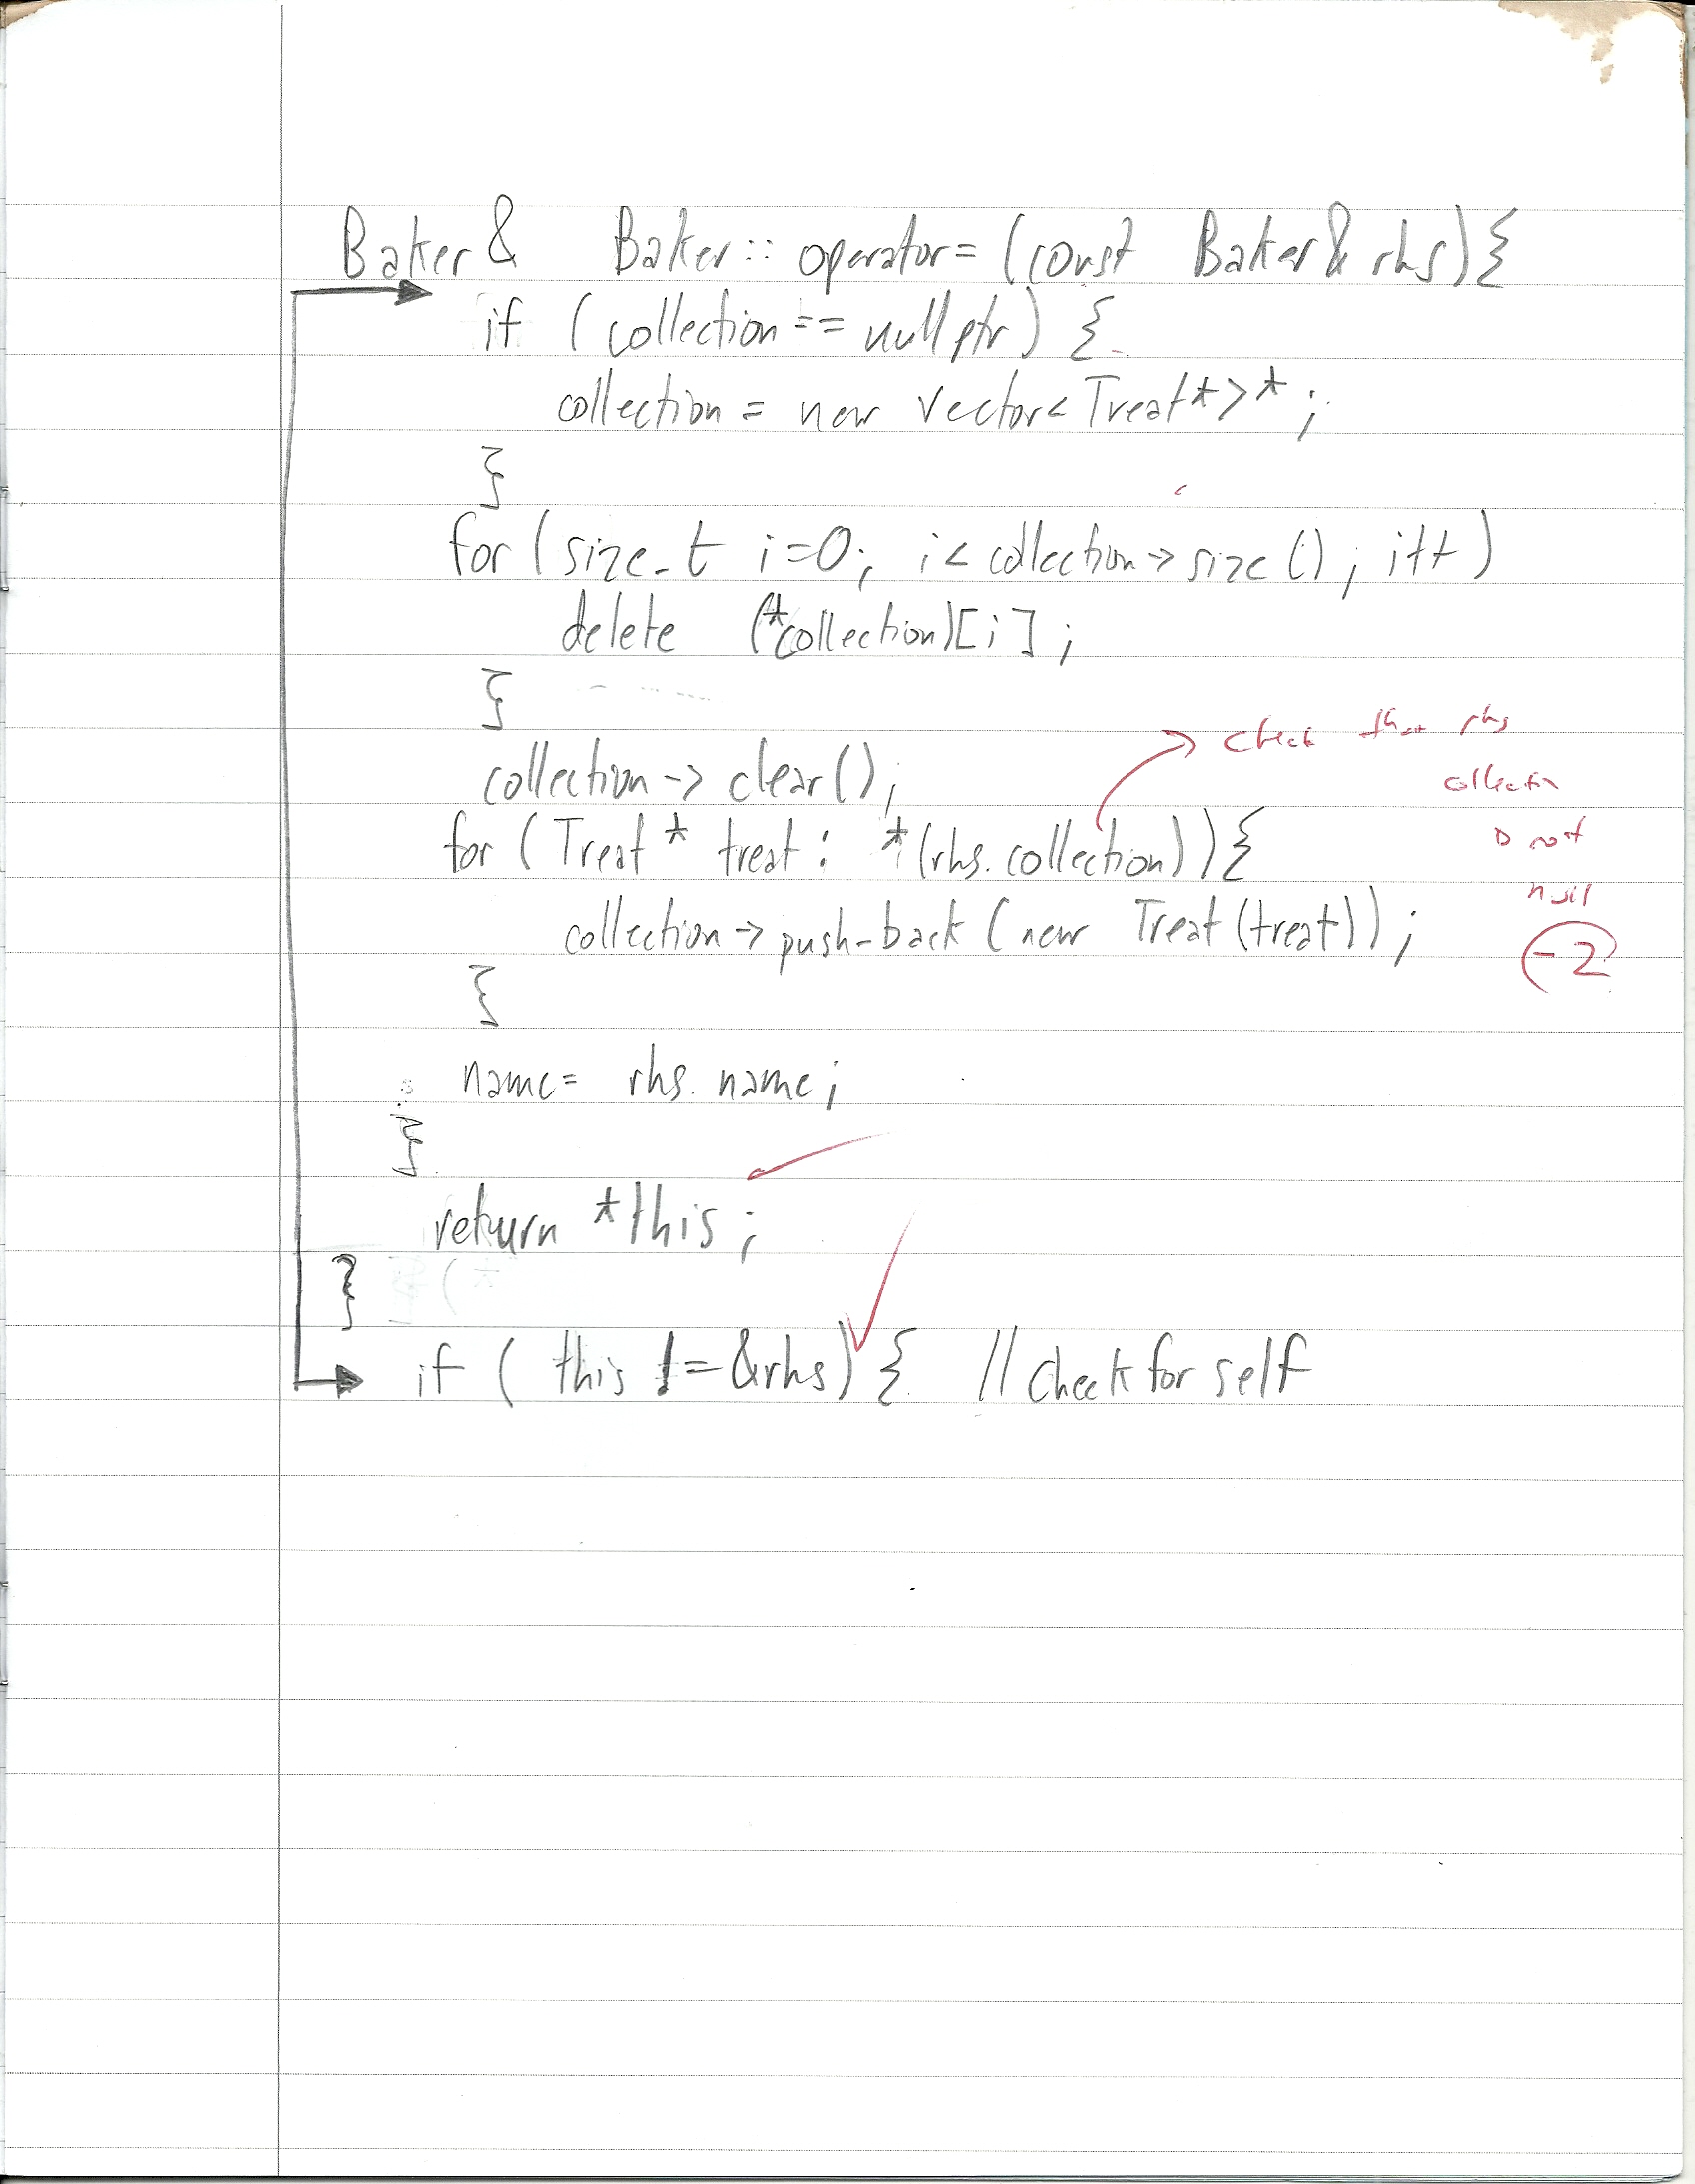 Baker& Baker::operator=(const Baker& rhs){
if (collection == nullptr) {
collection = new vector<Treat*>*;
}
for (size_t i=0; i<collection->size(); i++)
delete (*collection)[i];
}
collection->clear();
for (Treat* treat: *(rhs.collection)){
collection->push_back(new Treat(treat));
}
name= rhs.name;
}
return *this;
}
if (this != &rhs) { // Check for self
check that rhs
collection
not
null
-2